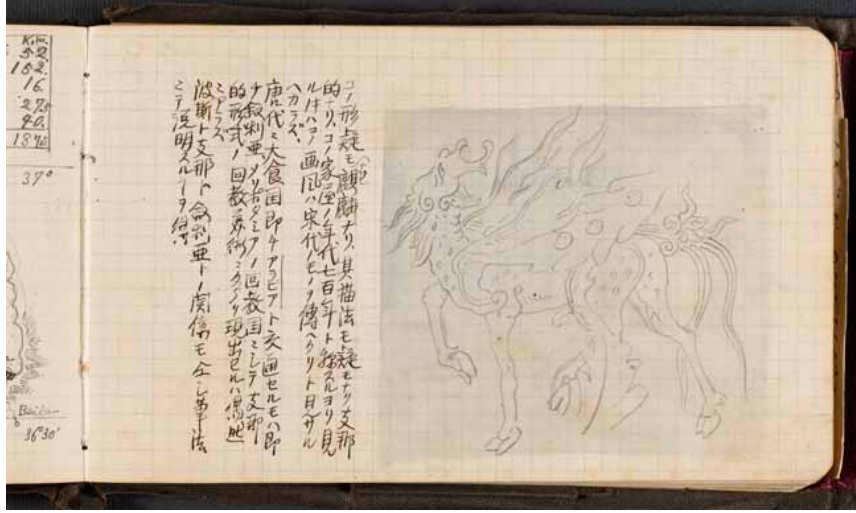 K.m.
52.
152.
16.
275
40.
1870
37°
Baila
36°30'
コノ形疑モナク麒麟ナリ、其描法モ疑モナク支那
的ナリ、コノ家屋ノ年代七百年ト称スルヨリ見
ルキハコノ画風ハ宋代ノモノヲ傳ヘタリト見サル
ヘカラズ、
唐代ニ大食国即チアラビアト交通セルモハ即
チ叙利亜メソポタミアノ回教国ニシテ支那
的形式ノ回教美術ニ現出セルハ偶然
ニアラズ
波斯ト支那ト叙利亜トノ関係モ仝シ筆法
ニテ説明スルヲ得